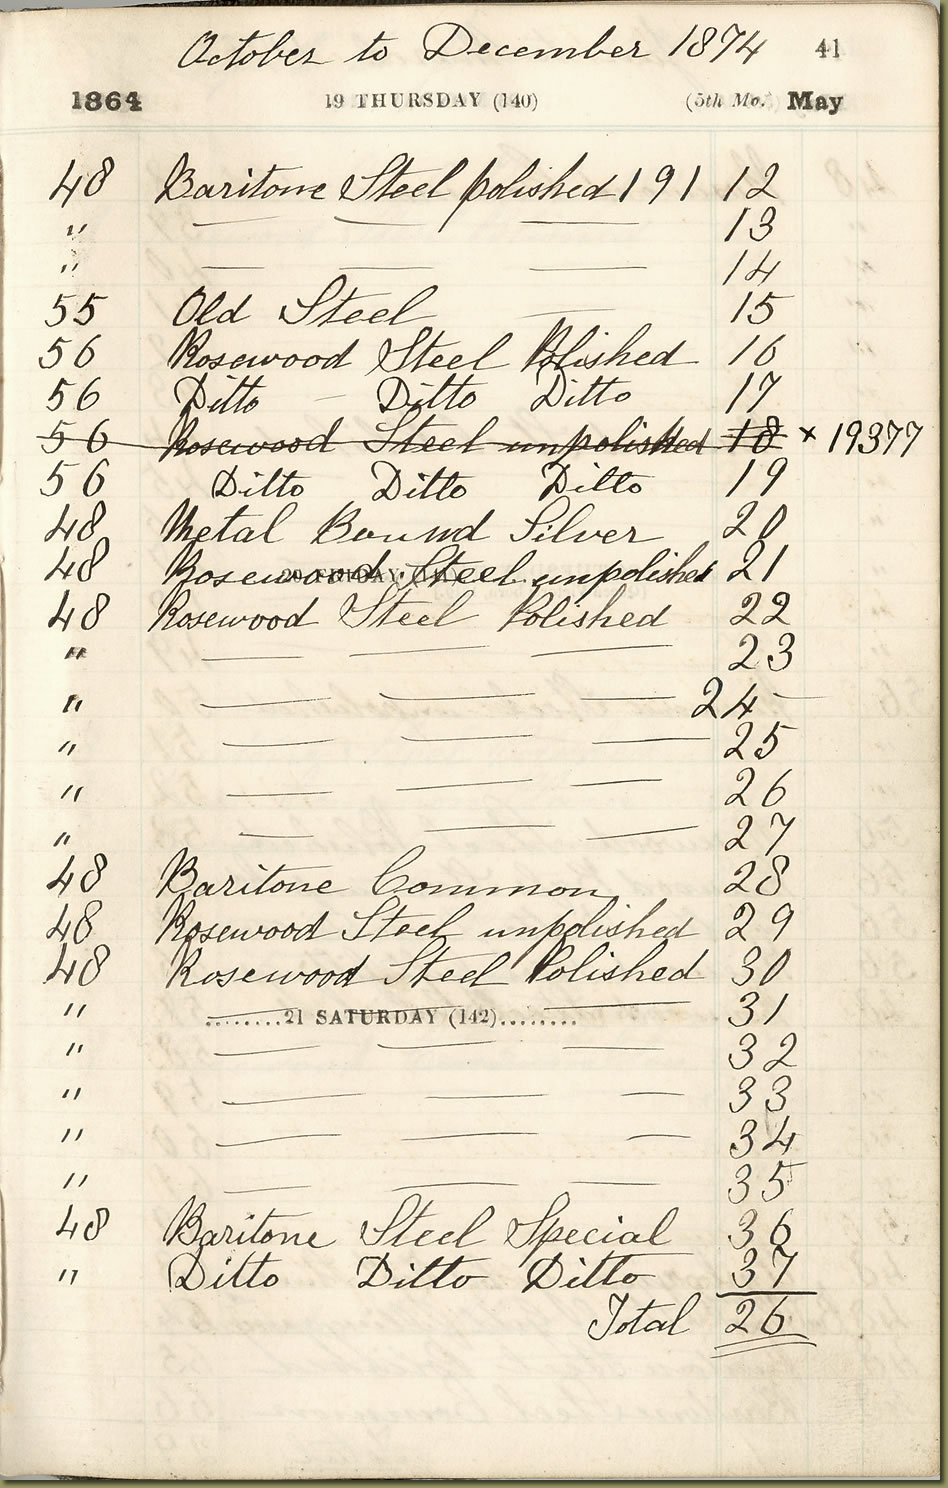 October to December 1874 41
1864 19 THURSDAY (140) (5th Mo.) May
48 Baritone Steel polished 191 12
" — — — 13
" — — — 14
55 Old Steel — 15
56 Rosewood Steel Polished 16
56 Ditto — Ditto Ditto 17
56 Rosewood Steel unpolished 18 × 19377
56 Ditto Ditto Ditto 19
48 Metal Bound Silver 20
48 Rosewood Steel unpolished 21
20 FRIDAY (141)
48 Rosewood Steel Polished 22
" — — — 23
" — — — 24
" — — — 25
" — — — 26
" — — — 27
48 Baritone Common 28
48 Rosewood Steel unpolished 29
48 Rosewood Steel Polished 30
" — — — 31
........21 SATURDAY (142)........
" — — — 32
" — — — 33
" — — — 34
" — — — 35
48 Baritone Steel Special 36
" Ditto Ditto Ditto 37
Total 26